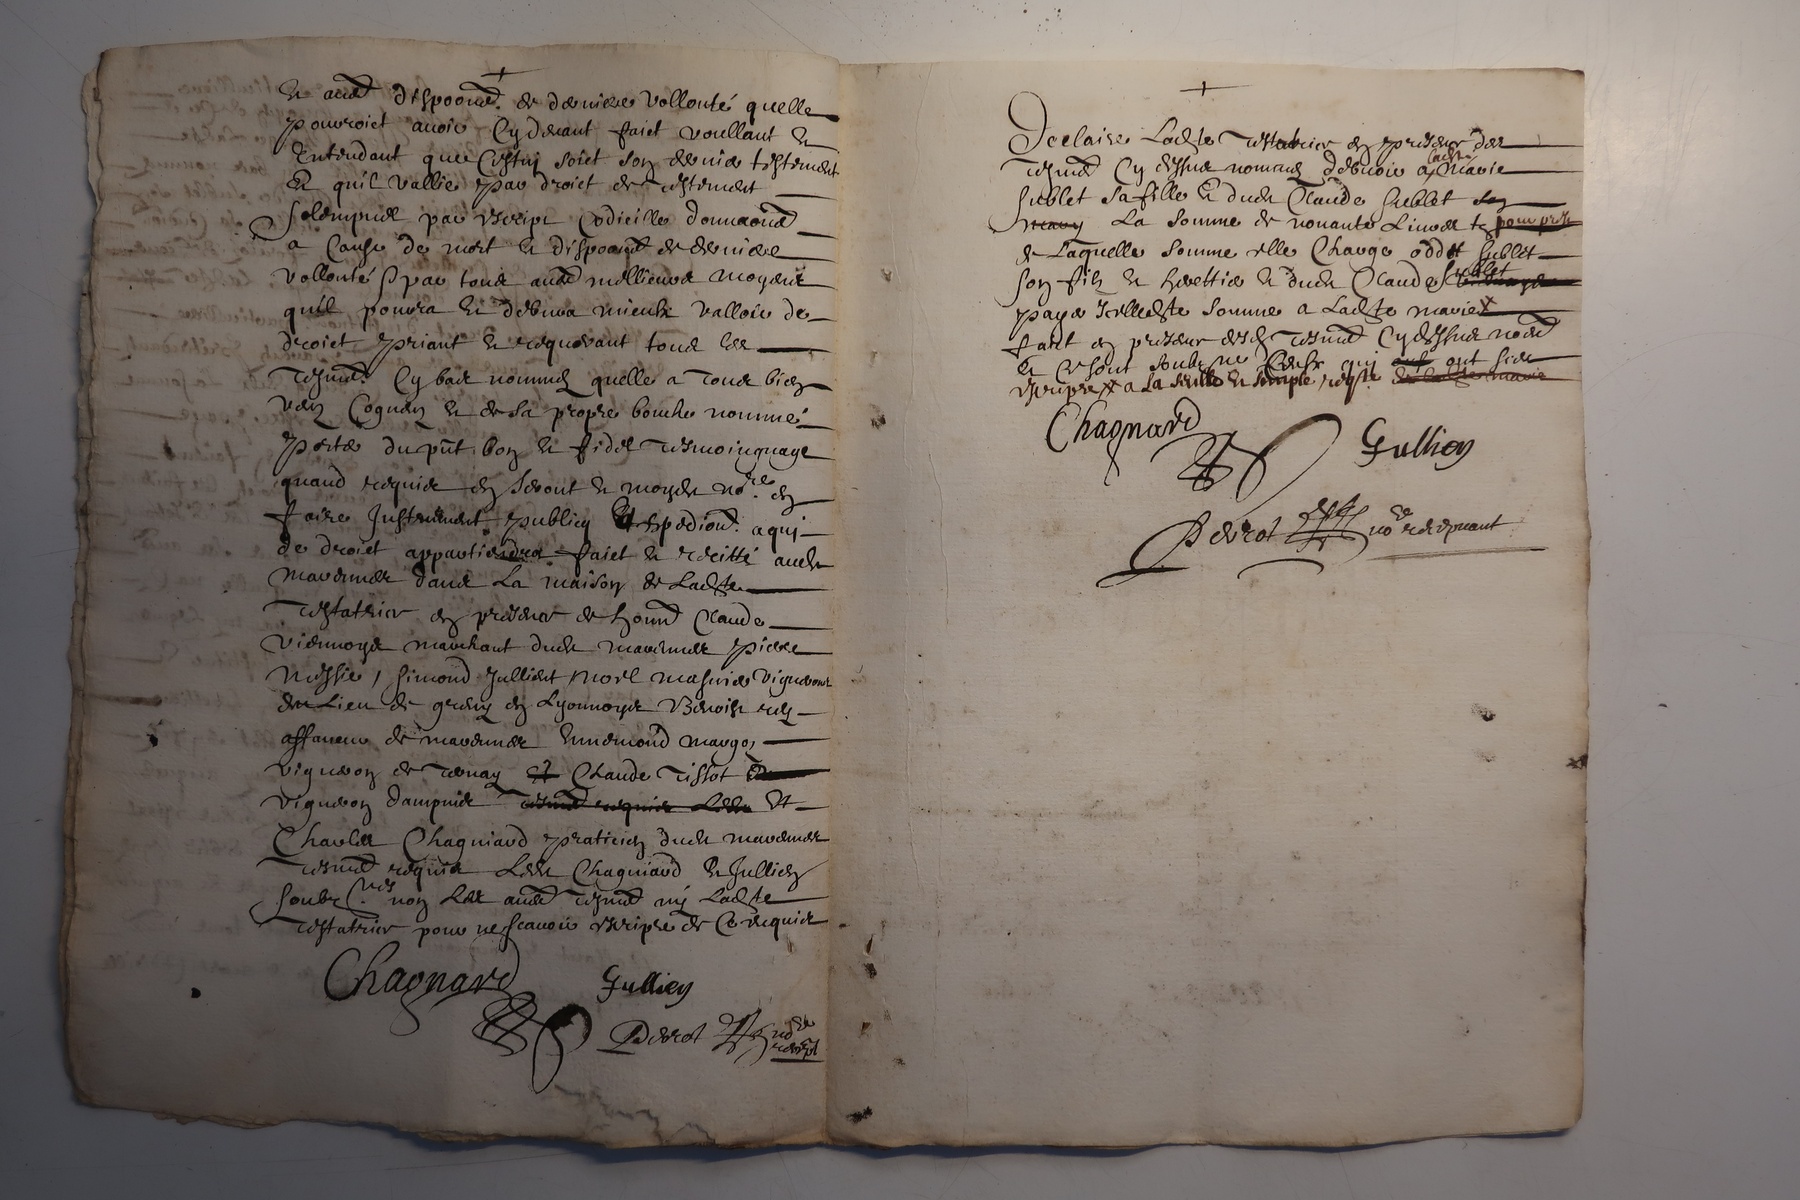 Et autres disposons. de derniere vollonté quelle
pourroict avoir Cy devant faict voullant Et
Entendant que Cestuy soict son dernier testement
Et quil vallie par droict de testement
solempnel par escript Codicille donnaons
a Cause de mort et disposons de derniere
vollonté & par tous aues mellieurs moyens
quil pourra Et debvra mieulx valloir de
droict priant et requerant tous les
tesmes. Cy bas nommes quelle a tous bien
veu Cogneu et de sa propre bouche nommé
porter du pnt bon et fidel tesmoingnage
quand requis en seront et moyder nore. en
faire Instrument publicq Et expedions. a qui
de droict appartiendra faict et recitté audit
mavernas dans La maison de Ladte
testatrice en presence de honne Claude
viennoys marchant dudt Pierre
Messier, Simond Jullien, vignerons
du Lieu de en Lyonnoys Benoist
affaneur de Ennemond Margot,
vigneron de Ternay Et Claude Tissot
vigneron dampuis tesmes requis Lesdt Et
Charles Chagniard praticien dudt
tesmes requis Lesdt Chagniard et Jullien
soubz.nes non Les aues tesmes ny Ladte
testatrice pour ne scavoir escripre de Ce requis
Chagnard Jullien
Perrot nore recept
Declaire Ladte testatrice en presence des
tesmes Cy dessus nommes debvoir a ladte Marie
Sublet sa fille Et dudt Claude Sublet son
La somme de nonante Livres ts
de Laquelle somme elle Charge Sublet
son filz et herettier et dudt Claude Sublet
payer Icelledte somme a Ladte marie
faict en presence desd tesmes Cydessus nomes
Et ce sont soubz.ne Ceulx qui ont sceu
escripre
Chagnard Jullien
Perrot nore recepvant